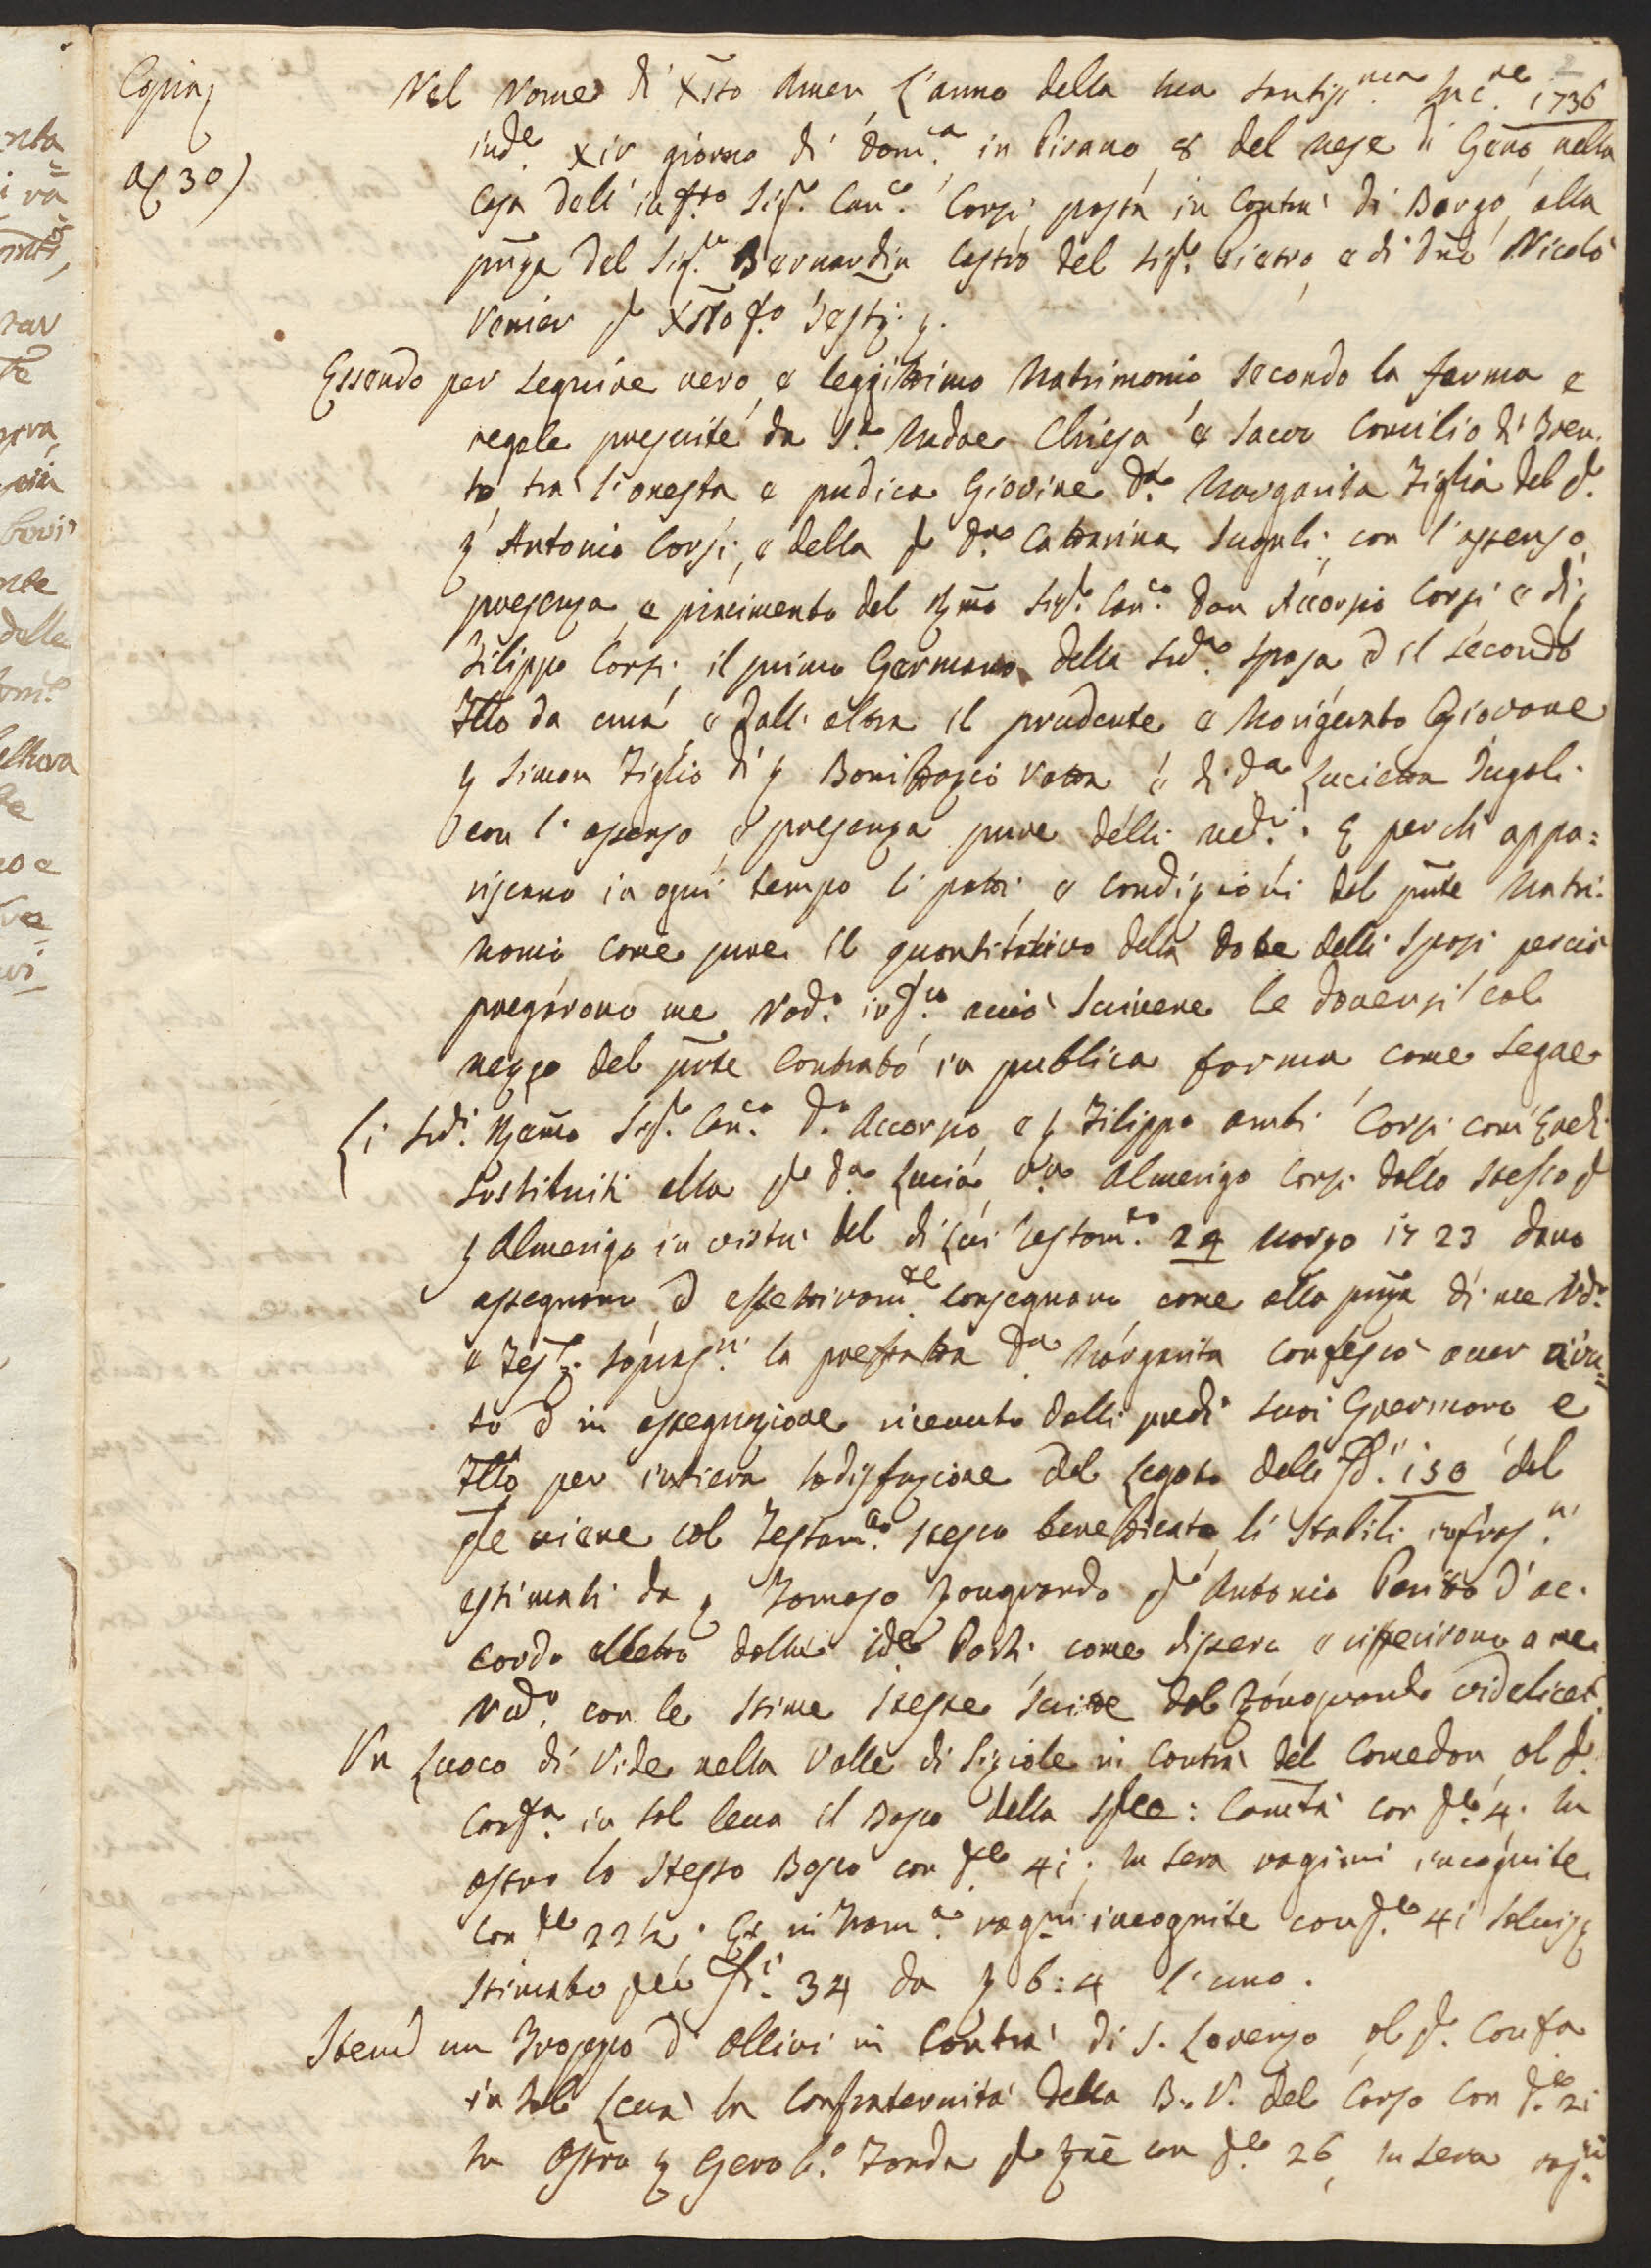 Copia
a 30)
Nel Nome di Xsto Amen L'anno della sua santiss.ma Inc.ne 1736
ind.e XIV giorno di dom.ca in Pirano 8 del mese di Geno nella
Casa dell' infrto Sig.r Can.co Corsi posta in Contra di Borgo, alla
pnza del Sig.r Bernardin Castro del Sig.r Pietro, e di Dne Nicolò
Venier q Xsto fo Testi
Essendo per seguire vero, e leggittimo Matrimonio secondo la forma e
regole prescritte da S.ta Madre Chiesa e Sacro Concilio di Tren
to, tra l'onesta, e pudica Giovine D.a Margarita Figlia del q.
Antonio Corsi, e della q D.na Cattarina Ingali, con l'assenso
presenza, e piacimento del Sig.r Can.co Don Accorsio Corsi e di
Filippo Corsi il primo Germano della sud.a Sposa, ed il secondo
Fllo da una, e dall' altra il prudente e Morigerato Giovane
Simon Figlio di Bonifazio Vatta e di D.a Lucietta Ingali
con l' assenso e presenza pure delli med.i. E perchè appa=
riscano in ogni tempo li patti e condizioni del pnte Matri
monio come pure il quantitativo della dote delli Sposi perciò
pregarono me Nod.o infr.o acciò scrivere le dovessi col
mezzo del pnte Contratto in publica forma come segue
Li sud.i Sig.r Can.co D.n Accorsio, e Filippo ambi Corsi com' Eredi
sostituiti alla q D.a Lucia Almerigo Corsi dallo stesso q
Almerigo in virtù del di Lui Testam.to 24 Marzo 1723 dano
assegnano, ed effettivam.te consegnano come alla pnza di me Nod.o
e Test. la prefatta D.a Margarita confessò aver
to ed in assegnazione ricevuto dalli predi suoi Germano e
Fllo per intiera sodisfazione del Legato delli D.ti 150 del
qle viene col Testam.to stesso beneficata li Stabili infras.ti
estimati da Tomaso Zonguardo q Antonio Perito d' ac
cordo elletto dalle Parti come dissero e riferirono a me
Nod.o con le stime stesse scritte dal Zonguardo videlicet
Un Luoco di Vide nella Valle di Siziole in Contra del Comedon, al q.
Conf.a in Sol leva il Bosco della Spce: Comtà con 4. In
ostro lo stesso Bosco con 41. In sera ragioni incognite
con 22½. Et in Tram.a rag.ni incognite con 41
stimato 34 da 6:4 l' uno.
Item un Trozzo d' ollivi in Contra di S. Lorenzo al q. Confa
in Sol Leva la Confraternita della B. V. del Corso con 21
In Ostro Gerol.o Fonda q Zne con 26, In Sera rag.ni